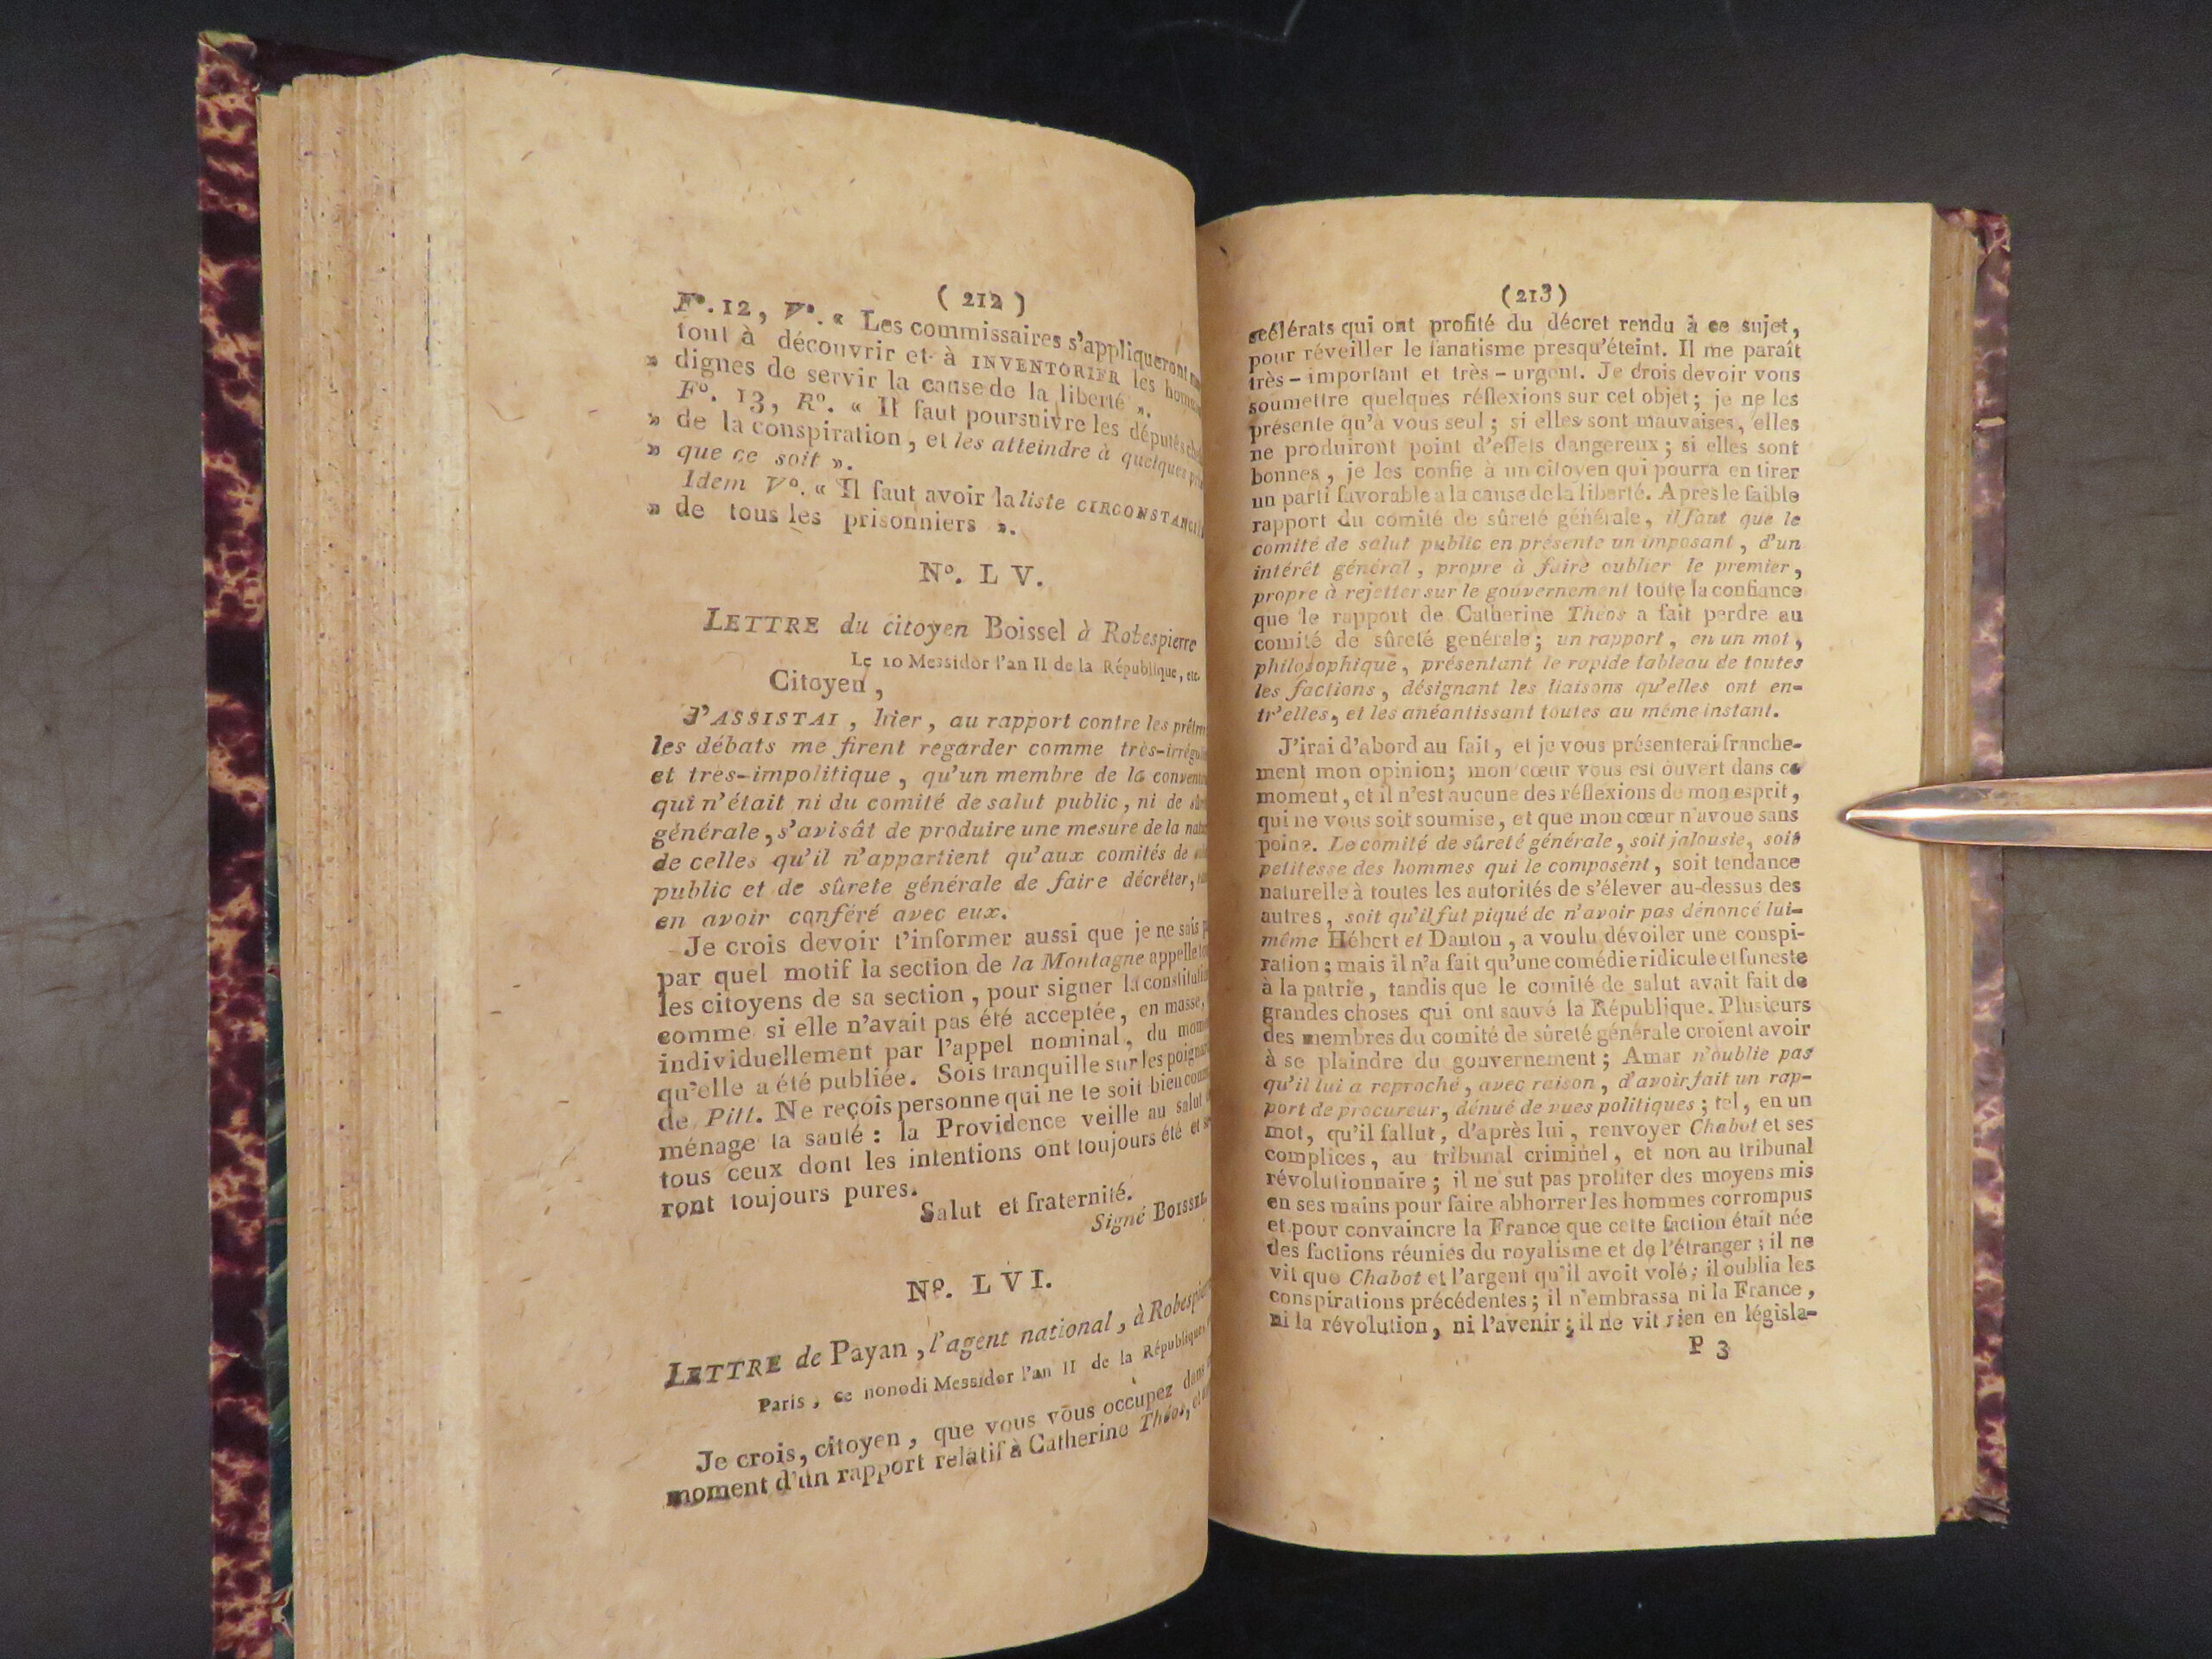 ( 212 )
F°. 12, V°. « Les commissaires s'appliqueront
tout à découvrir et à INVENTORIER les
» dignes de servir la cause de la liberté ».
F°. 13, R°. « Il faut poursuivre les députés
» de la conspiration, et les atteindre à quelque
» que ce soit ».
Idem V°. « Il faut avoir la liste
» de tous les prisonniers ».
N°. L V.
LETTRE du citoyen Boissel à Robespierre
Le 10 Messidor l'an II de la République, etc.
Citoyen,
J'ASSISTAI, hier, au rapport contre les
les débats me firent regarder comme
et très-impolitique, qu'un membre de la
qui n'était ni du comité de salut public, ni de
générale, s'avisât de produire une mesure de la
de celles qu'il n'appartient qu'aux comités de
public et de sûrete générale de faire décréter,
en avoir conféré avec eux.
Je crois devoir t'informer aussi que je ne sais
par quel motif la section de la Montagne appelle
les citoyens de sa section, pour signer la
comme si elle n'avait pas été acceptée, en masse,
individuellement par l'appel nominal, du
qu'elle a été publiée. Sois tranquille sur les
de Pitt. Ne reçois personne qui ne te soit bien
ménage ta santé : la Providence veille au salut
tous ceux dont les intentions ont toujours été et
ront toujours pures.
Salut et fraternité.
Signé
N°. L V I.
LETTRE de Payan, l'agent national, à
Paris, ce nonodi Messidor l'an II de la
Je crois, citoyen, que vous vous occupez dans
moment d'un rapport relatif à Catherine Théos,
(213)
scélérats qui ont profité du décret rendu à ce sujet,
pour réveiller le fanatisme presqu'éteint. Il me paraît
très-important et très-urgent. Je crois devoir vous
soumettre quelques réflexions sur cet objet ; je ne les
présente qu'à vous seul ; si elles sont mauvaises, elles
ne produiront point d'effets dangereux ; si elles sont
bonnes, je les confie à un citoyen qui pourra en tirer
un parti favorable à la cause de la liberté. Après le faible
rapport du comité de sûreté générale, il faut que le
comité de salut public en présente un imposant, d'un
intérêt général, propre à faire oublier le premier,
propre à rejetter sur le gouvernement toute la confiance
que le rapport de Catherine Théos a fait perdre au
comité de sûreté générale ; un rapport, en un mot,
philosophique, présentant le rapide tableau de toutes
les factions, désignant les liaisons qu'elles ont en-
tr'elles, et les anéantissant toutes au même instant.
J'irai d'abord au fait, et je vous présenterai franche-
ment mon opinion ; mon cœur vous est ouvert dans ce
moment, et il n'est aucune des réflexions de mon esprit,
qui ne vous soit soumise, et que mon cœur n'avoue sans
peine. Le comité de sûreté générale, soit jalousie, soit
petitesse des hommes qui le composent, soit tendance
naturelle à toutes les autorités de s'élever au-dessus des
autres, soit qu'il fut piqué de n'avoir pas dénoncé lui-
même Hébert et Danton, a voulu dévoiler une conspi-
ration ; mais il n'a fait qu'une comédie ridicule et funeste
à la patrie, tandis que le comité de salut avait fait de
grandes choses qui ont sauvé la République. Plusieurs
des membres du comité de sûreté générale croient avoir
à se plaindre du gouvernement ; Amar n'oublie pas
qu'il lui a reproché, avec raison, d'avoir fait un rap-
port de procureur, dénué de vues politiques ; tel, en un
mot, qu'il fallut, d'après lui, renvoyer Chabot et ses
complices, au tribunal criminel, et non au tribunal
révolutionnaire ; il ne sut pas profiter des moyens mis
en ses mains pour faire abhorrer les hommes corrompus
et pour convaincre la France que cette faction était née
des factions réunies du royalisme et de l'étranger ; il ne
vit que Chabot et l'argent qu'il avoit volé ; il oublia les
conspirations précédentes ; il n'embrassa ni la France,
ni la révolution, ni l'avenir ; il ne vit rien en législa-
P 3